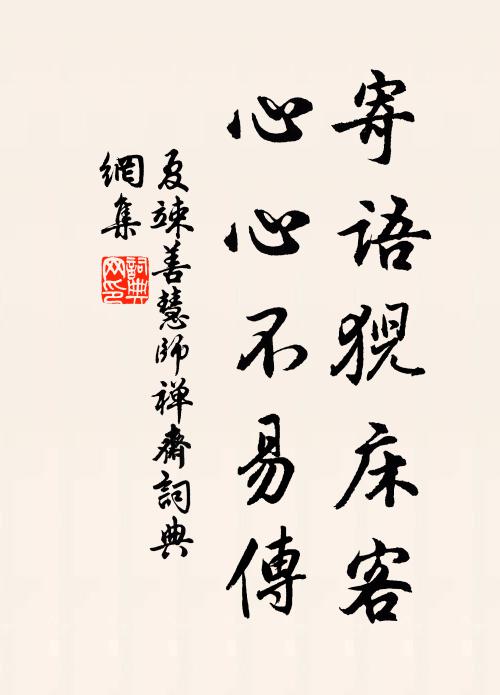 寄語猊床客
心心不易傳
夏竦善慧師禅齋詞典
網集
詞典
网印